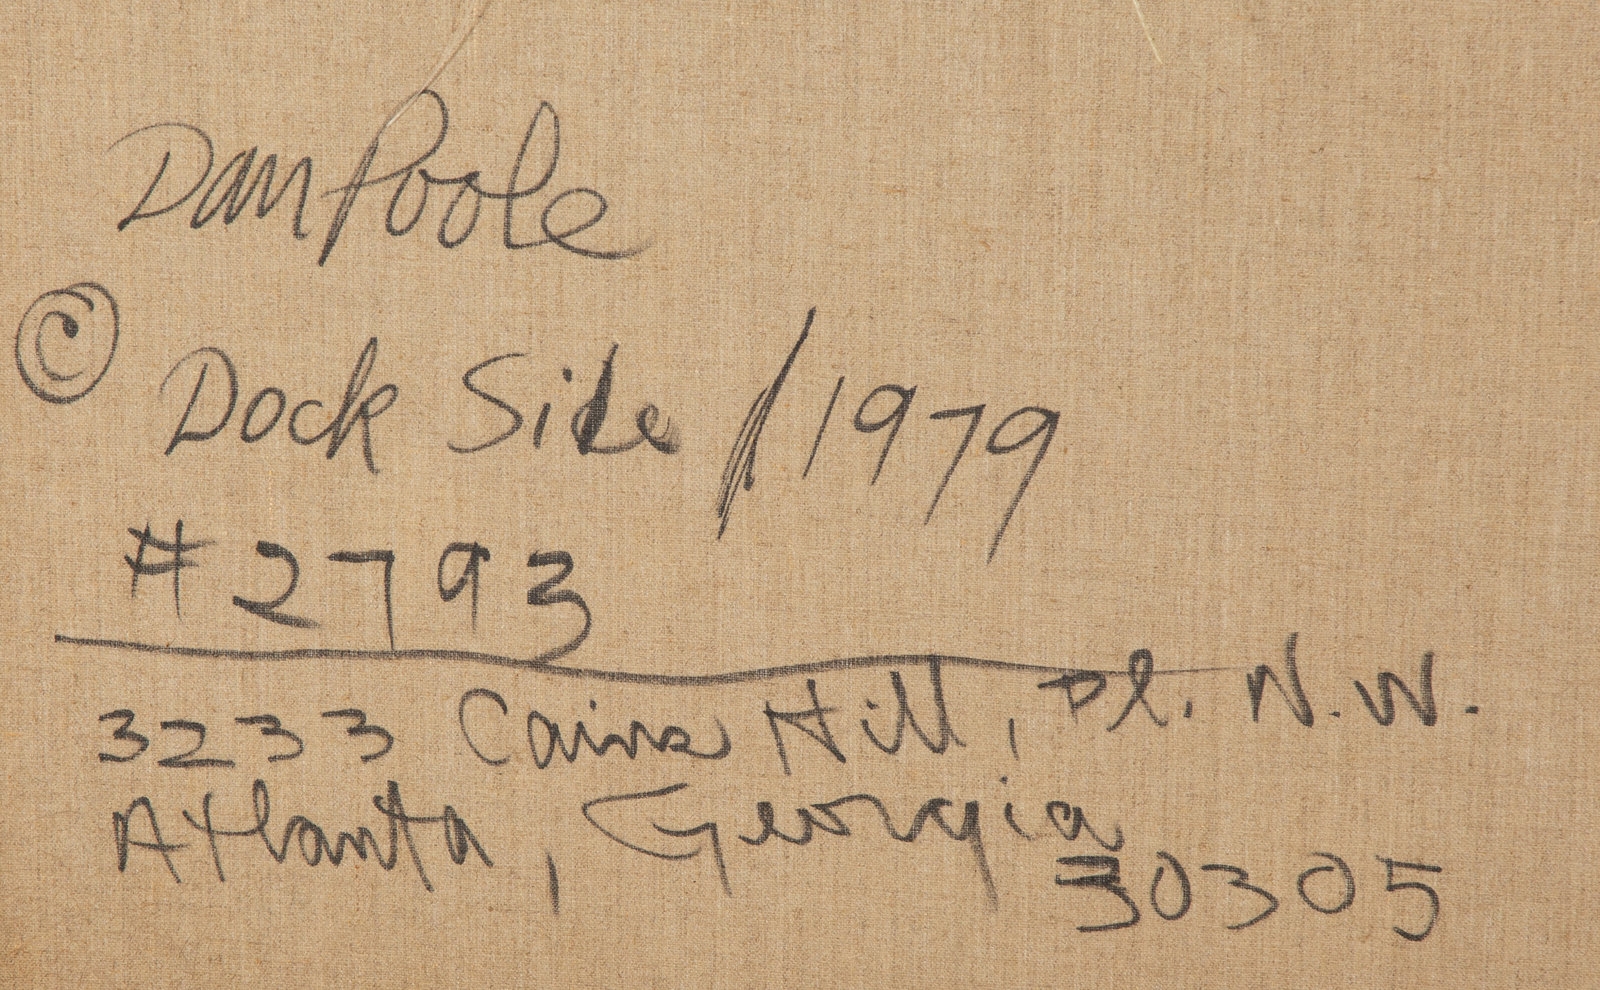 Dan Poole
© Dock Side / 1979
#2793
3233 Cains Hill, Pl. N.W.
Atlanta, Georgia
30305